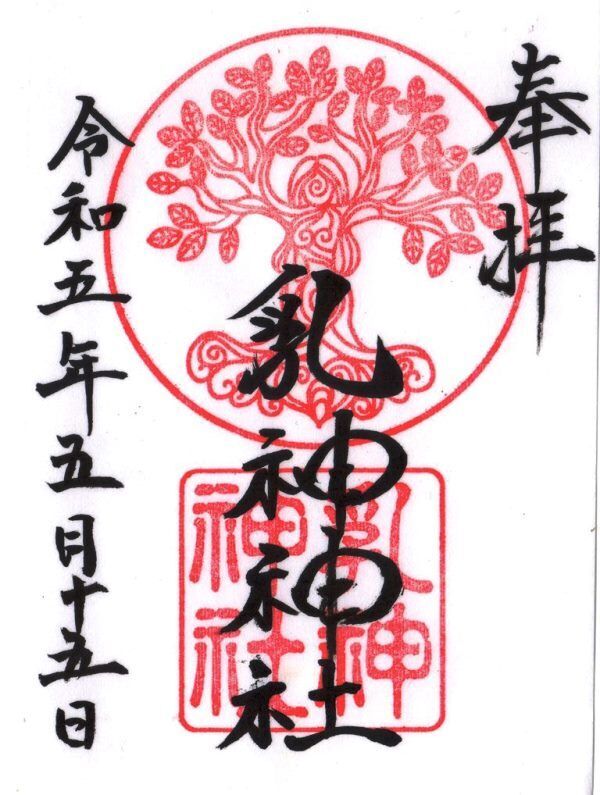 奉拝
乳神神社
乳神
神社
令和五年五月十五日